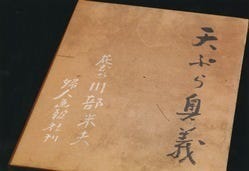 天ぷら奥義
川部米夫
婦人画報社刊